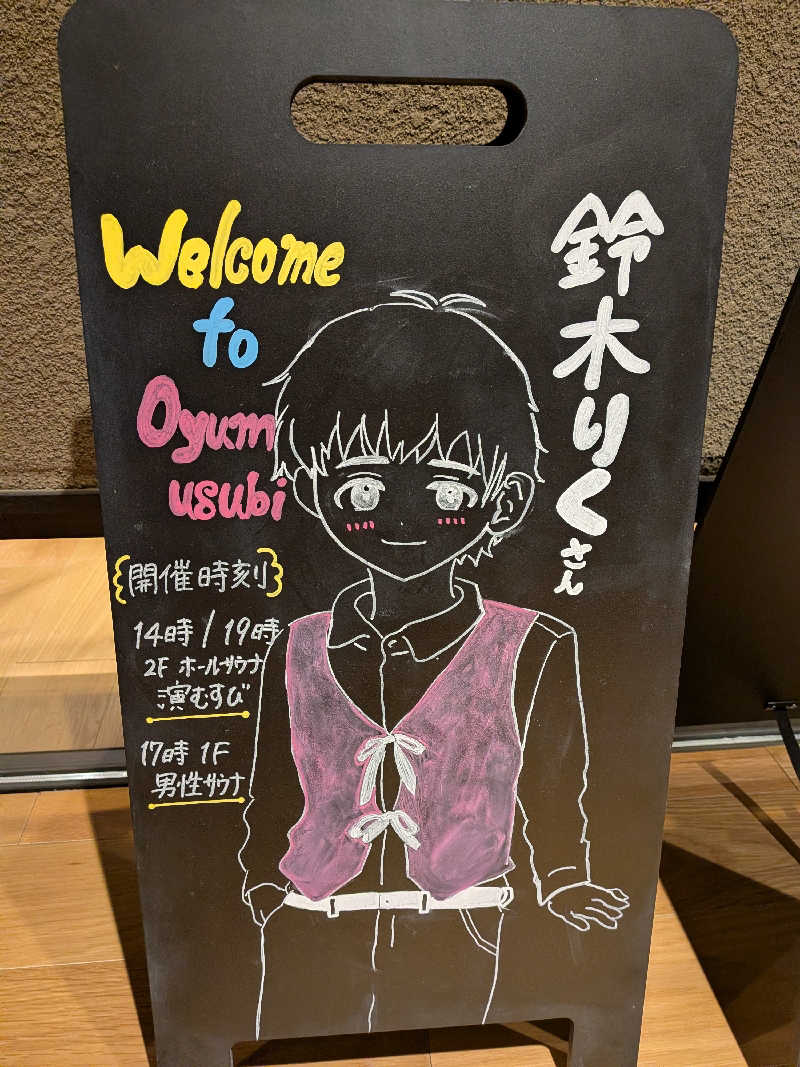 Welcome
to
Oyum
usubi
鈴木りくさん
開催時刻
14時/19時
2F ホールサウナ
演むすび
17時 1F
男性サウナ